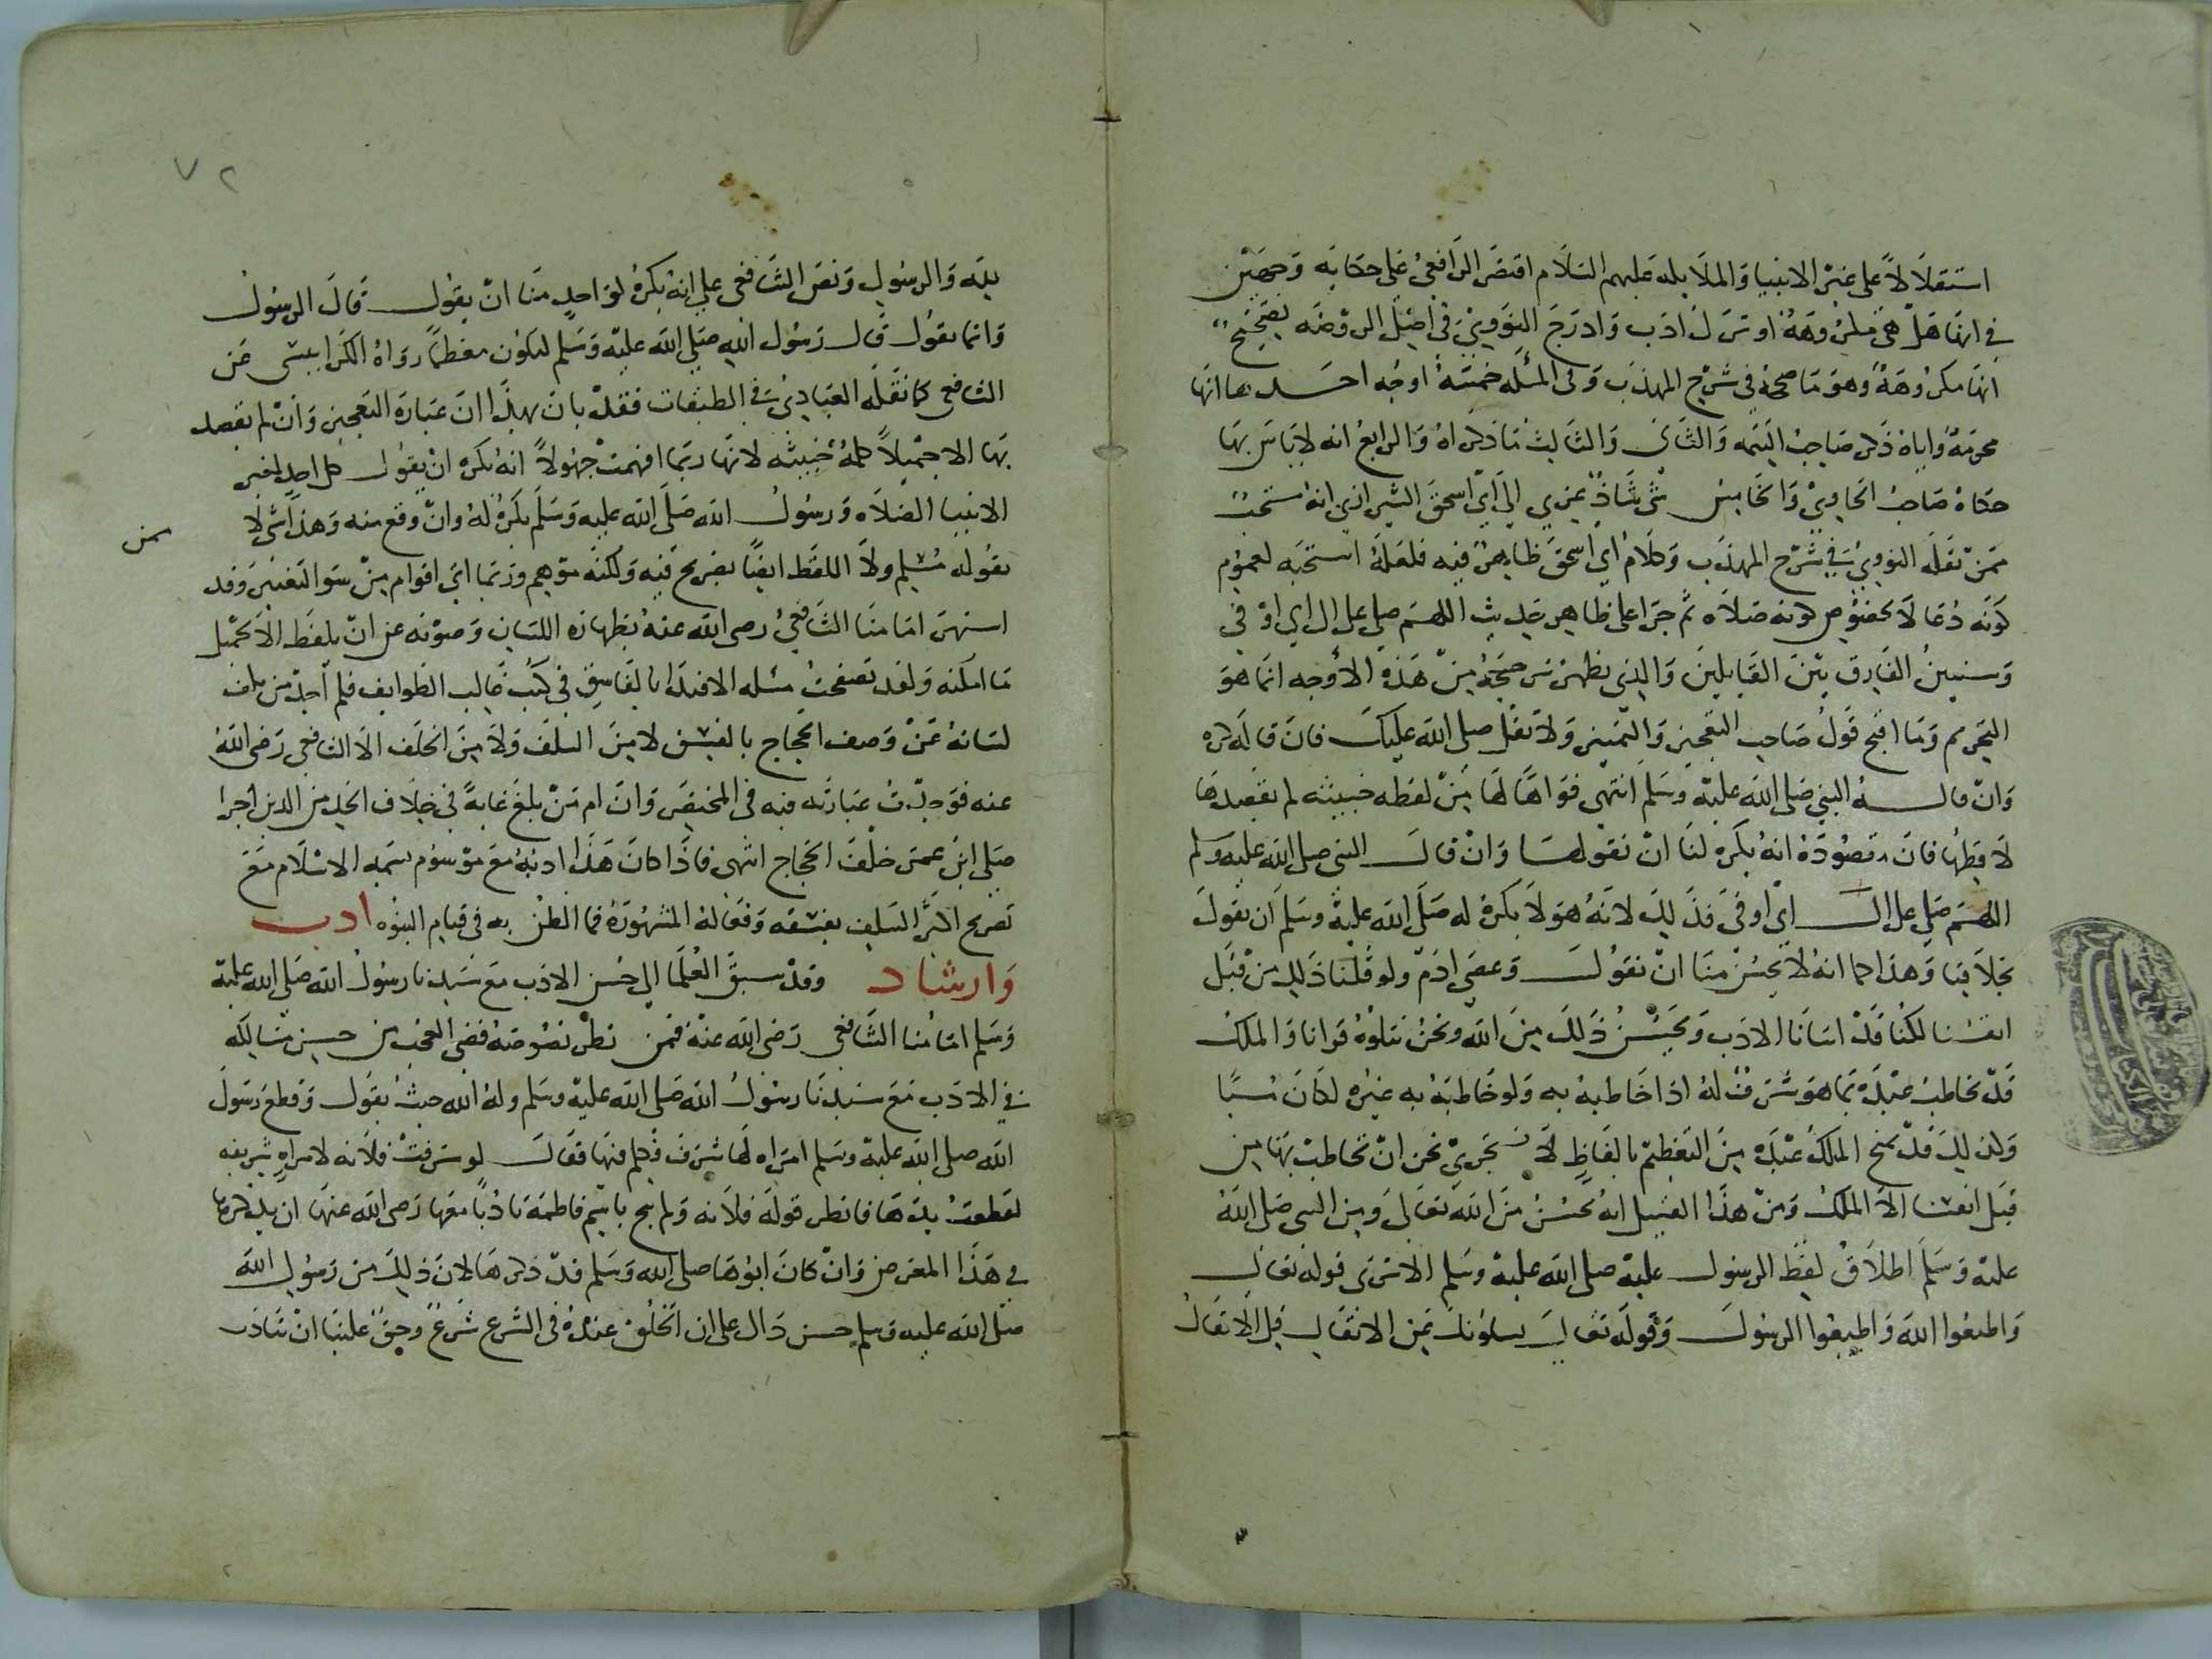 استقلالاً على غير الانبيا والملايكه عليهم السلام اقتصر الرافعي على حكايه وجهين
في انها هل هي مكروهة او ترك ادب وادرج النووي في اصل الروضه تصحيح
انها مكروهة وهو ما صححه في شرح المهذب وفي المسئله خمسة اوجه احدها انها
محرمة واياه ذكر صاحب التتمه والثاني والثالث ما ذكراه والرابع انه لا باس بها
حكاه صاحب الحاوي والخامس شي شاذ عزي الى ابي اسحق الشيرازي انه مستحب
ممن نقله النووي في شرح المهذب وكلام ابي اسحق ظاهر فيه فلعله استحبه لعموم
كونه دعا لا لخصوص كونه صلاه ثم جرا على ظاهر حديث اللهم صل على ال ابي اوفى
وسنبين الفارق بين القايلين والذي نظهر ترجيحه من هذه الاوجه انما هو
التحريم وما اقبح قول صاحب التعجيز والتمييز ولا تقل صلى الله عليك فان قاله كره
وان قاله النبي صلى الله عليه وسلم انتهى فواها لها من لفظه خبيثه لم نقصدها
لافظها فان مقصوده انه يكره لنا ان نقولها وان قال النبي صلى الله عليه وسلم
اللهم صل على ال ابي اوفى فذلك لانه هو لا يكره له صلى الله عليه وسلم ان يقول
بخلافنا وهذا كما انه لا يحسن منا ان نقول وعصى ادم ولو قلنا ذلك من قبل
انفسنا لكنا قد اسانا الادب ويحسن ذلك من الله ونحن نتلوه قرانا والملك
قد يخاطب عبده بما هو شرف له اذا خاطبه به ولو خاطبه به غيره لكان سبا
وكذلك قد يمنح الملك عبده من التعظيم بالفاظ لا نجتري نحن ان نخاطب بها من
قبل انفسنا الا الملك ومن هذا القبيل انه يحسن من الله تعالى ومن النبي صلى الله
عليه وسلم اطلاق لفظ الرسول عليه صلى الله عليه وسلم الا ترى قوله تعالى
واطيعوا الله واطيعوا الرسول وقوله تعالى يسلونك عن الانفال قل الانفال
٧٢
لله والرسول ونص الشافعي على انه يكره لواحد منا ان يقول قال الرسول
وانما يقول قال رسول الله صلى الله عليه وسلم ليكون معظما رواه الكرابيسي عن
الشافعي كما نقله العبادي في الطبقات فقد بان بهذا ان عبارة التعجيز وان لم نقصد
بها الا جميلا كلمة خبيثه لانها ربما افهمت جهولا انه يكره ان يقول كل احد لغير
الانبيا الصلاه ورسول الله صلى الله عليه وسلم يكره له وان وقع منه وهذا شي لا
يقوله مسلم ولا اللفظ ايضا بصريح فيه ولكنه موهم وربما اتي اقوام من سوا التعبير وقد
اشتهر امامنا الشافعي رضى الله عنه بطهاره اللسان وصونه عن ان يلفظ الا بجميل
ما امكنه ولقد تصفحت مسئله الاقتدا بالفاسق في كتب غالب الطوايف فلم اجد من كف
لسانه عن وصف الحجاج بالفسق لا من السلف ولا من الخلف الا الشافعي رضى الله
عنه فوجدت عبارته فيه في المختصر وان ام من بلغ غاية في خلاف الحد من الدين اجزا
صلى ابن عمر خلف الحجاج انتهى فاذا كان هذا ادبه مع موسوم بسمه الاسلام مع
تصريح اكثر السلف بفسقه وفعاله المشهورة فما الظن به في قيام النبوه ادب
وارشاد وقد سبق العلما الى حسن الادب مع سيدنا رسول الله صلى الله عليه
وسلم امامنا الشافعي رضى الله عنه فمن نظر نصوصه قضى العجب من حسن مسالكه
في الادب مع سيدنا رسول الله صلى الله عليه وسلم وله الله حيث يقول وقطع رسول
الله صلى الله عليه وسلم امراه لها شرف فكلم فيها فقال لو سرقت فلانه لامراه شريفه
لقطعت يدها فانظر قوله فلانه ولم يبح باسم فاطمة تادبا معها رضى الله عنها ان يذكرها
في هذا المعرض وان كان ابوها صلى الله عليه وسلم قد ذكرها لان ذلك من رسول الله
صلى الله عليه وسلم حسن دال على ان الخلق عنده في الشرع شرع وحق علينا ان نتادب